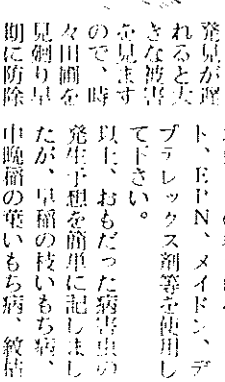 発見が遅
れると大
きな被害
を見ます
ので、時
々田圃を
見廻り早
期に防除
ト、EPN、メイドン、デ
プテレックス剤等を使用し
て下さい。
以上、おもだった病害虫の
発生予想を簡単に記しまし
たが、早稲の枝いもち病、
中晩稲の葉いもち病、紋枯